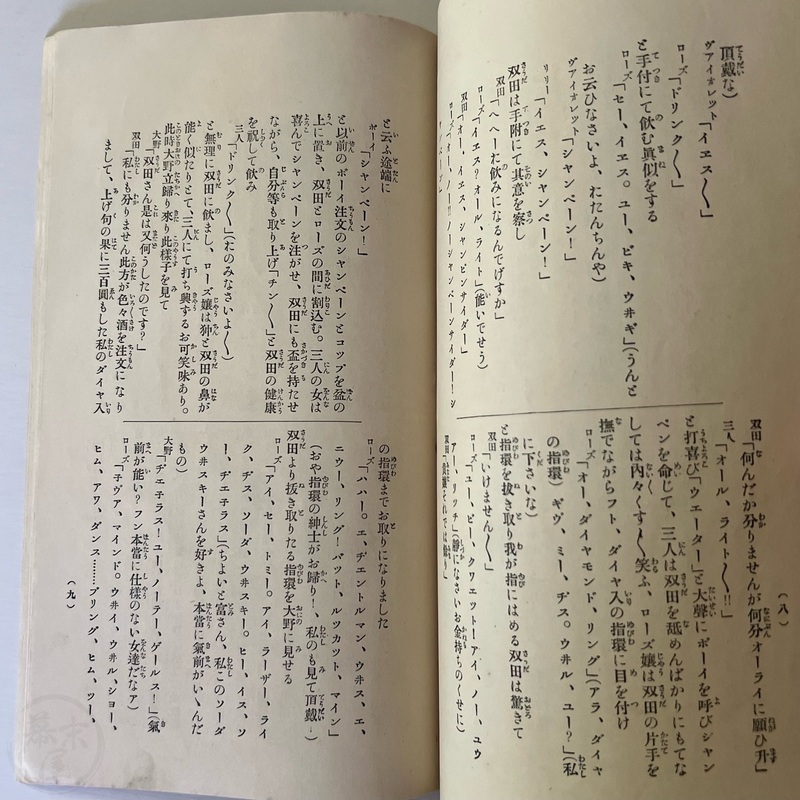 頂戴な)
ヴアイオレット「イエス〱」
ローズ「ドリンク〱」
と手付にて飲む眞似をする
ローズ「セー、イエス。ユー、ピキ、ウ井ギ」(うんと
お云ひなさいよ、わたんちんや)
ヴアイオレット「シャンペーン!」
リリー「イエス、シャンペーン!」
双田は手附にて其意を察し
双田「へへーに飲みになるんでげすか」
ローズ「イエス?オール、ライト」(能いでせう)
双田「オー、イエス、シャンピンサイダー」
双田「何んだか分りませんが何分オーライに願ひ升」
三人「オール、ライト〱!!」
と打喜び「ウエーター」と大聲にボーイを呼びシャン
ペンを命じて、三人は双田を舐めんばかりにもてな
しては內々くす〱笑ふ、ローズ嬢は双田の片手を
撫でながらフト、ダイヤ入の指環に目を付け
ローズ「オー、ダイヤモンド、リング」(アラ、ダイヤ
の指環)ギヴ、ミー、ヂス。ウ井ル、ユー?」(私
に下さいな)
と指環を拔き取り我が指にはめる双田は驚きて
双田「いけません〱」
ローズ「ユー、ビー、クワエットーアイ、ノー、ユウ
アー、リッチ」(靜になさいお金持ちのくせに)
(八)
と云ふ途端に
ボーイ「シャンペーン!」
と以前のボーイ注文のシャンペーンとコップを盆の
上に置き、双田とローズの間に割込む。三人の女は
喜んでシャンペーンを注がせ、双田にも盃を持たせ
ながら、自分等も取り上げ「チン〱」と双田の健康
を祝して飲み
三人「ドリンク〱」(わのみなさいよ〱)
と無理に双田に飲まし、ローズ嬢は狆と双田の鼻が
能く似たりとて三人にて打ち興するお可笑味あり。
此時大野立歸り來り此樣子を見て
大野「双田さん是は又何うしたのです?」
双田「私にも分りません此方が色々酒を注文になり
まして、上げ句の果に三百圓もした私のダイヤ入
の指環までお取りになりました
ローズ「ハハー。エ、ヂエントルマン、ウ井ス、エ、
ニウー、リング!バット、ルツカツト、マイン」
(おや指環の紳士がお歸り!、私のも見て頂戴…)
双田より拔き取りたる指環を大野に見せる
ローズ「アイ、セー、トミー。アイ、ラーザー、ライ
ク、ヂス、ソーダ、ウ井スキー。ヒー、イス、ソ
ー、ヂエチラス」(ちよいと富さん、私このソーダ
ウ井スキーさんを好きよ、本當に氣前がいゝんだ
もの)
大野「ヂエチラス!ユー、ノーテー、ゲールス!」(氣
前が能い?フン本當に仕樣のない女達だなア)
ローズ「子ヴア、マインド。ウ井イ、ウ井ル、ショー、
ヒム、アワ、ダンス……ブリング、ヒム、ツー、
(九)